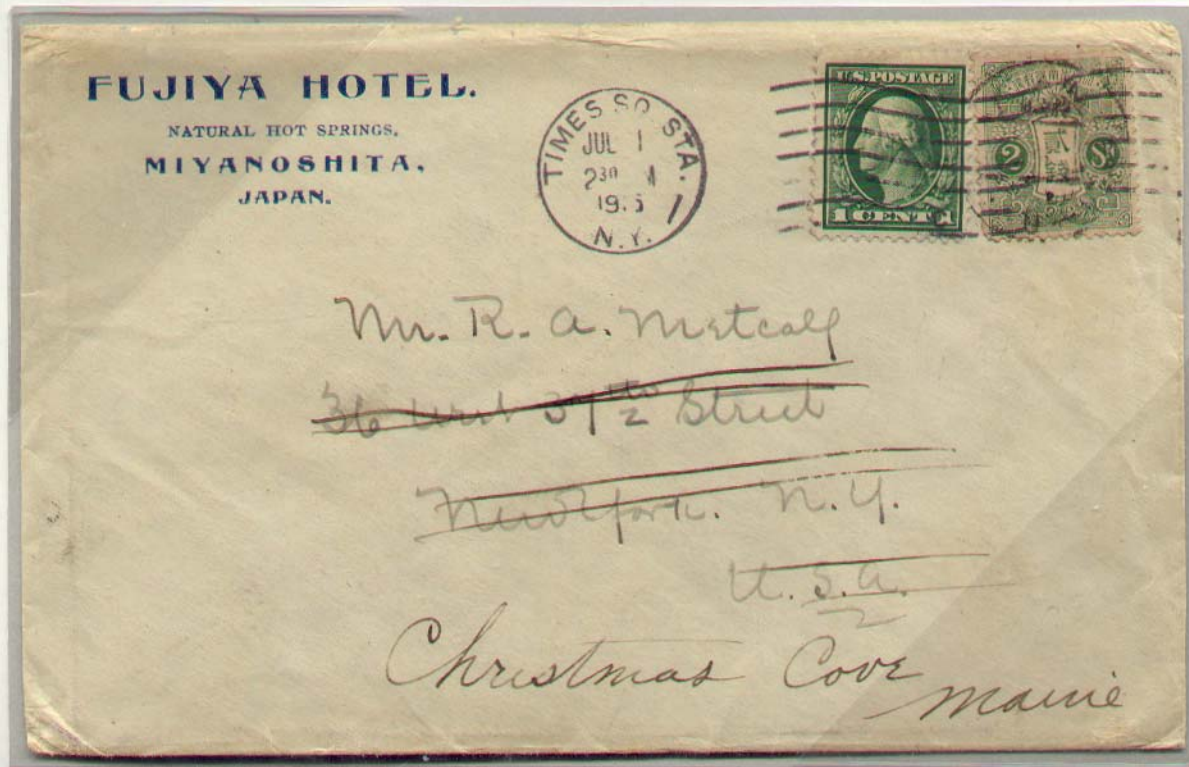 FUJIYA HOTEL.
NATURAL HOT SPRINGS,
MIYANOSHITA,
JAPAN.
TIMES SQ. STA.
JUL 1
2 30 M
N.Y.
U.S. POSTAGE
1 CENT 1
2 貳錢 Sn
Mr. R. A. Metcalf
36 West 37th Street
New York. N.Y.
U.S.A.
Christmas Cove
Maine